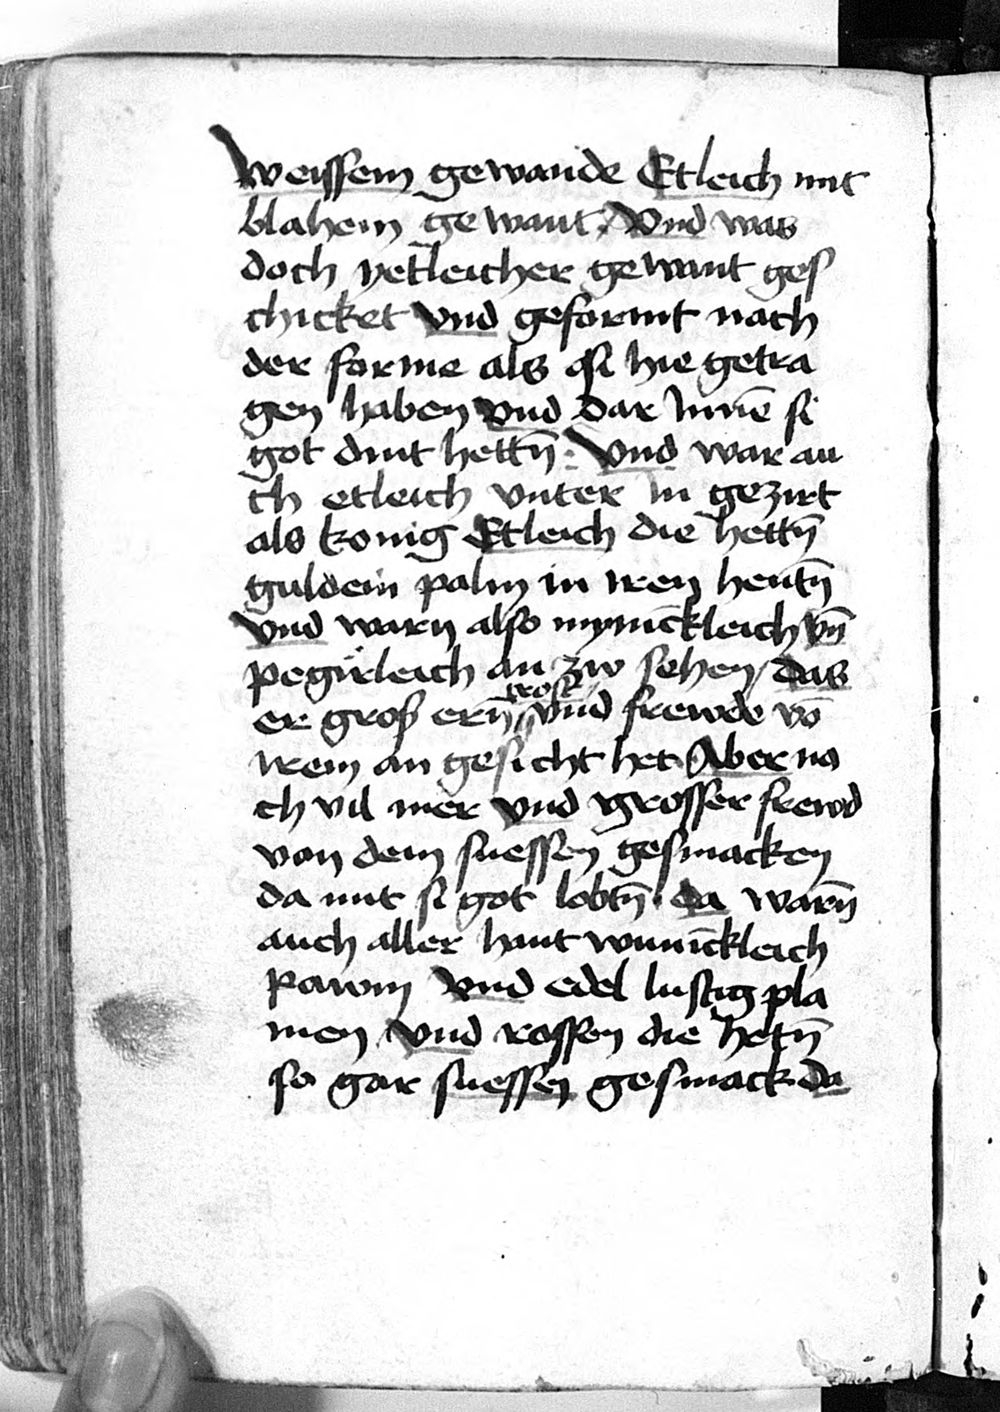 weissem gewande Etleich mit
blahem gewant. Vnd was
doch yetleicher gewant ges
chicket vnd geformt nach
der forme als si hie getra
gen haben vnd dar Inne̅ si
got dint hettn̅. Vnd war au
ch etleich vnter in gezirt
als konig Etleich die hettn̅
guldein palm in iren hentn̅
vnd warn also mynic̅kleich vn̅
pegirleich an zw sehen / das
er groß ern̅ trost vnd frewde vo̅
irem an gesicht het. Aber no
ch vil mer vnd grosser frewd
von dem suessen gesmacken
da mit si got lobtn̅. da warn̅
auch aller hant wunic̅kleich
Pawm vnd edel lustig plu
men vnd rossen die hetn̅
so gar suessen gesmack. da